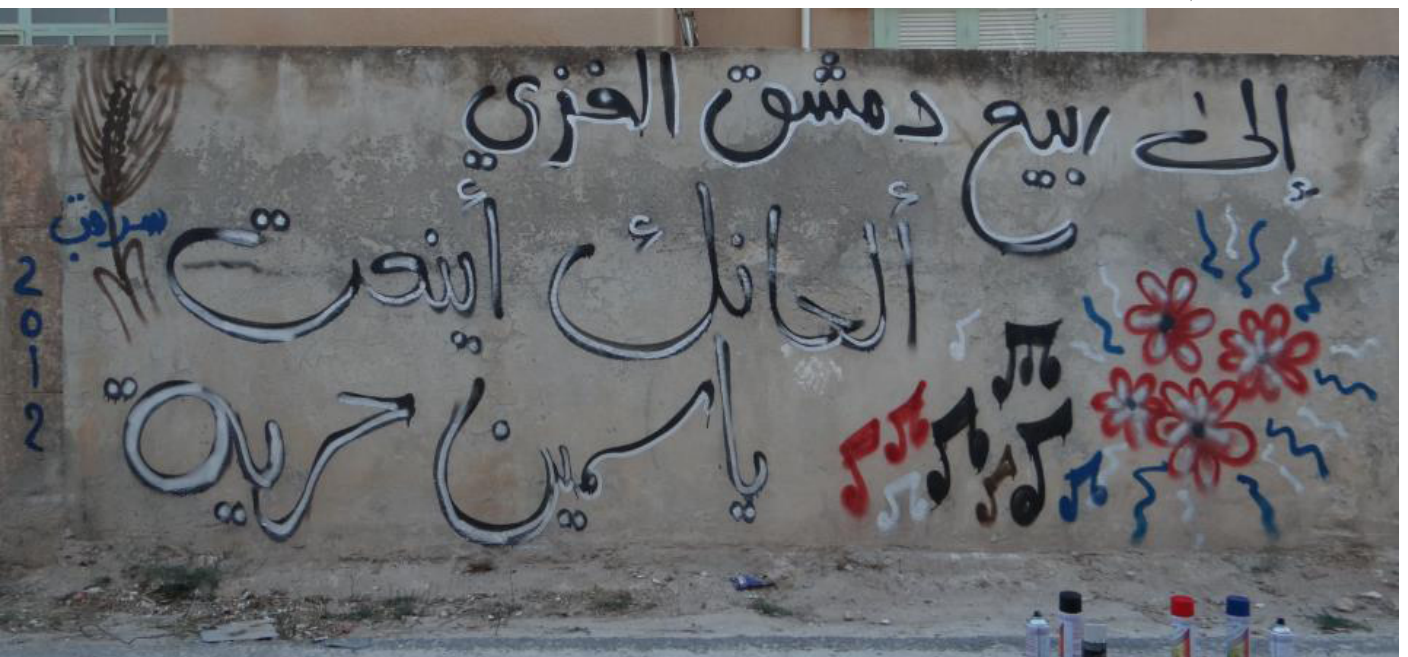 إلى ربيع دمشق الغزي
ألحانك أينعت
ياسمين حرية
2012